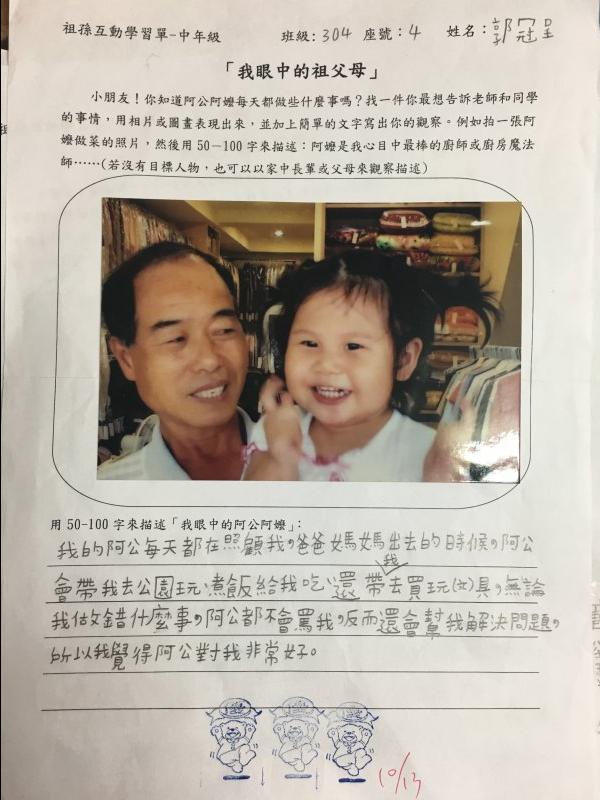 祖孫互動學習單-中年級 班級:304 座號:4 姓名:郭冠呈
「我眼中的祖父母」
小朋友！你知道阿公阿嬤每天都做些什麼事嗎？找一件你最想告訴老師和同學
的事情，用相片或圖畫表現出來，並加上簡單的文字寫出你的觀察。例如拍一張阿
嬤做菜的照片，然後用50－100字來描述：阿嬤是我心目中最棒的廚師或廚房魔法
師……(若沒有目標人物，也可以以家中長輩或父母來觀察描述)
用50-100字來描述「我眼中的阿公阿嬤」：
我的阿公每天都在照顧我，爸爸媽媽出去的時候，阿公
會帶我去公園玩、煮飯給我吃、還帶我去買玩(文)具，無論
我做錯什麼事，阿公都不會罵我，反而還會幫我解決問題，
所以我覺得阿公對我非常好。
10/13